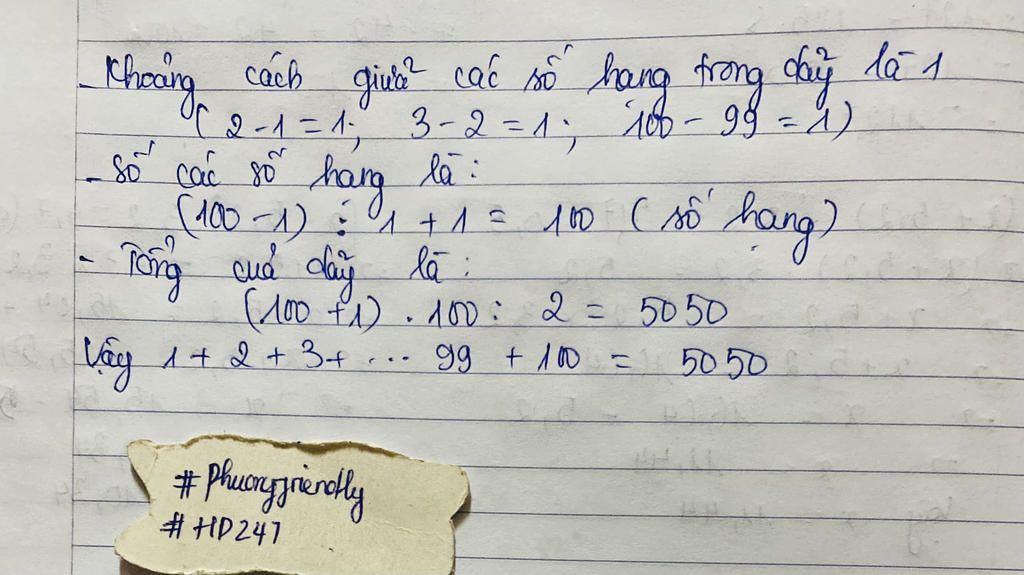 - Khoảng cách giữa các số hạng trong dãy là 1
( 2 - 1 = 1; 3 - 2 = 1; 100 - 99 = 1)
- Số các số hạng là:
(100 - 1) : 1 + 1 = 100 ( số hạng)
- Tổng của dãy là:
(100 + 1) . 100 : 2 = 5050
Vậy 1 + 2 + 3 + ... 99 + 100 = 5050
#Phuongfriendly
#HD247